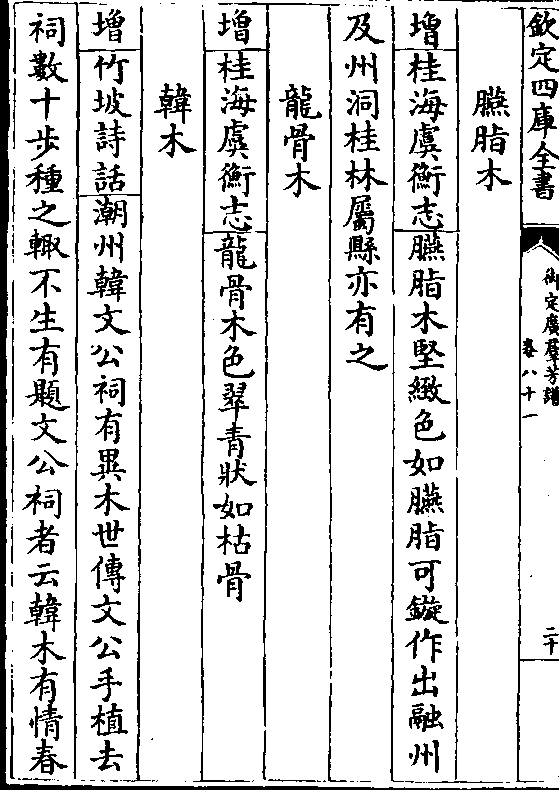 欽定四庫全書
御定廣羣芳譜
卷八十一
二十
臙脂木
增桂海虞衡志臙脂木堅緻色如臙脂可鏇作出融州
及州洞桂林屬縣亦有之
龍骨木
增桂海虞衡志龍骨木色翠青狀如枯骨
韓木
增竹坡詩話潮州韓文公祠有異木世傳文公手植去
祠數十步種之輙不生有題文公祠者云韓木有情春